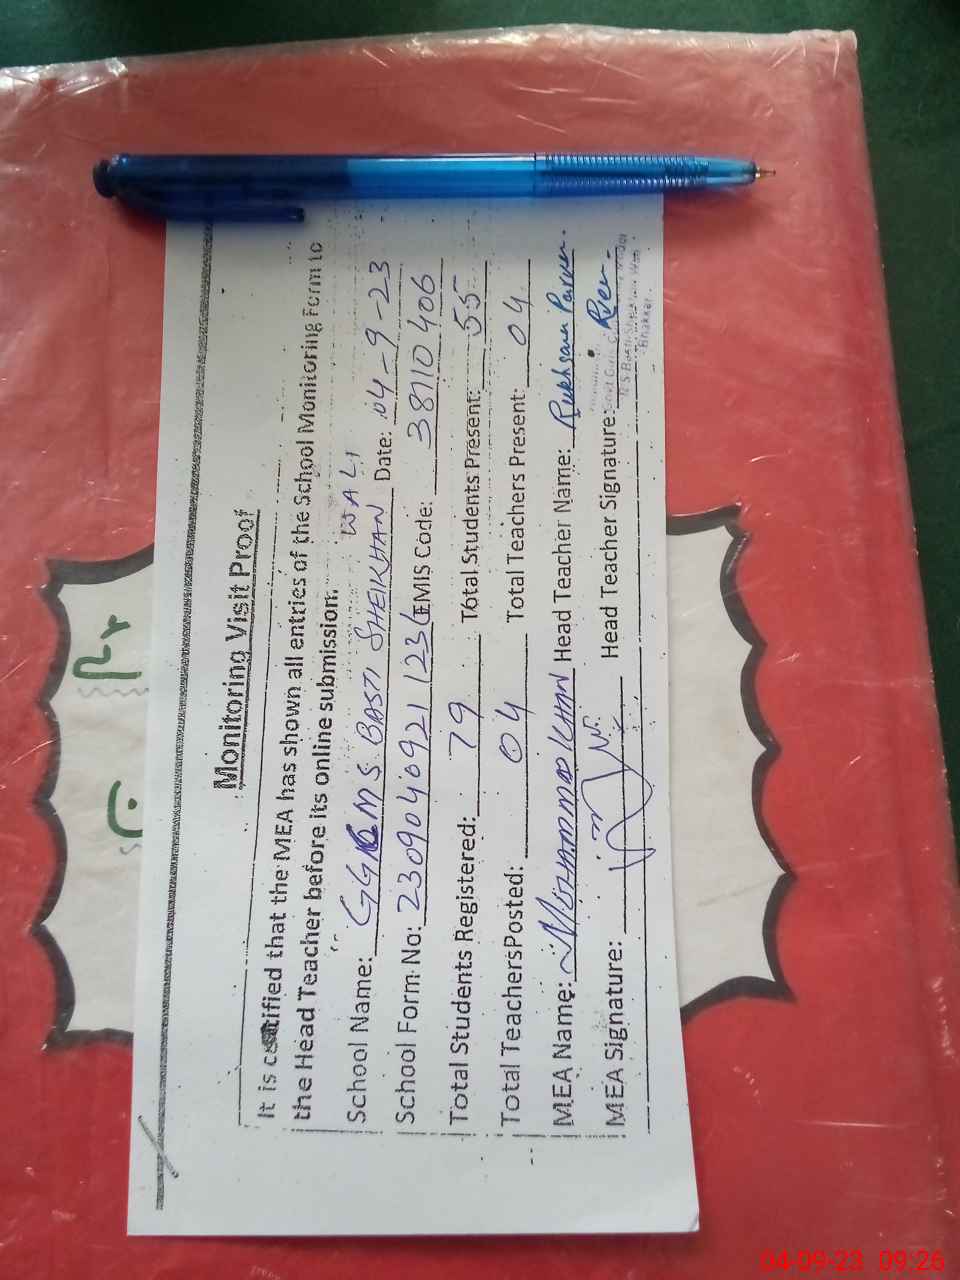 Monitoring Visit Proof
It is certified that the MEA has shown all entries of the School Monitoring Form to
the Head Teacher before its online submission.
WALI
School Name: GGMS BASTI SHEIKHAN Date: 04-9-23
School Form No: 2309040921123 EMIS Code: 38110406
Total Students Registered: 79 Total Students Present: 55
Total Teachers Posted: 04 Total Teachers Present: 04
MEA Name: Mohammad Khan Head Teacher Name: Rukhsana Parveen.
MEA Signature: Head Teacher Signature:
Bhakkar
04-09-23 09:26